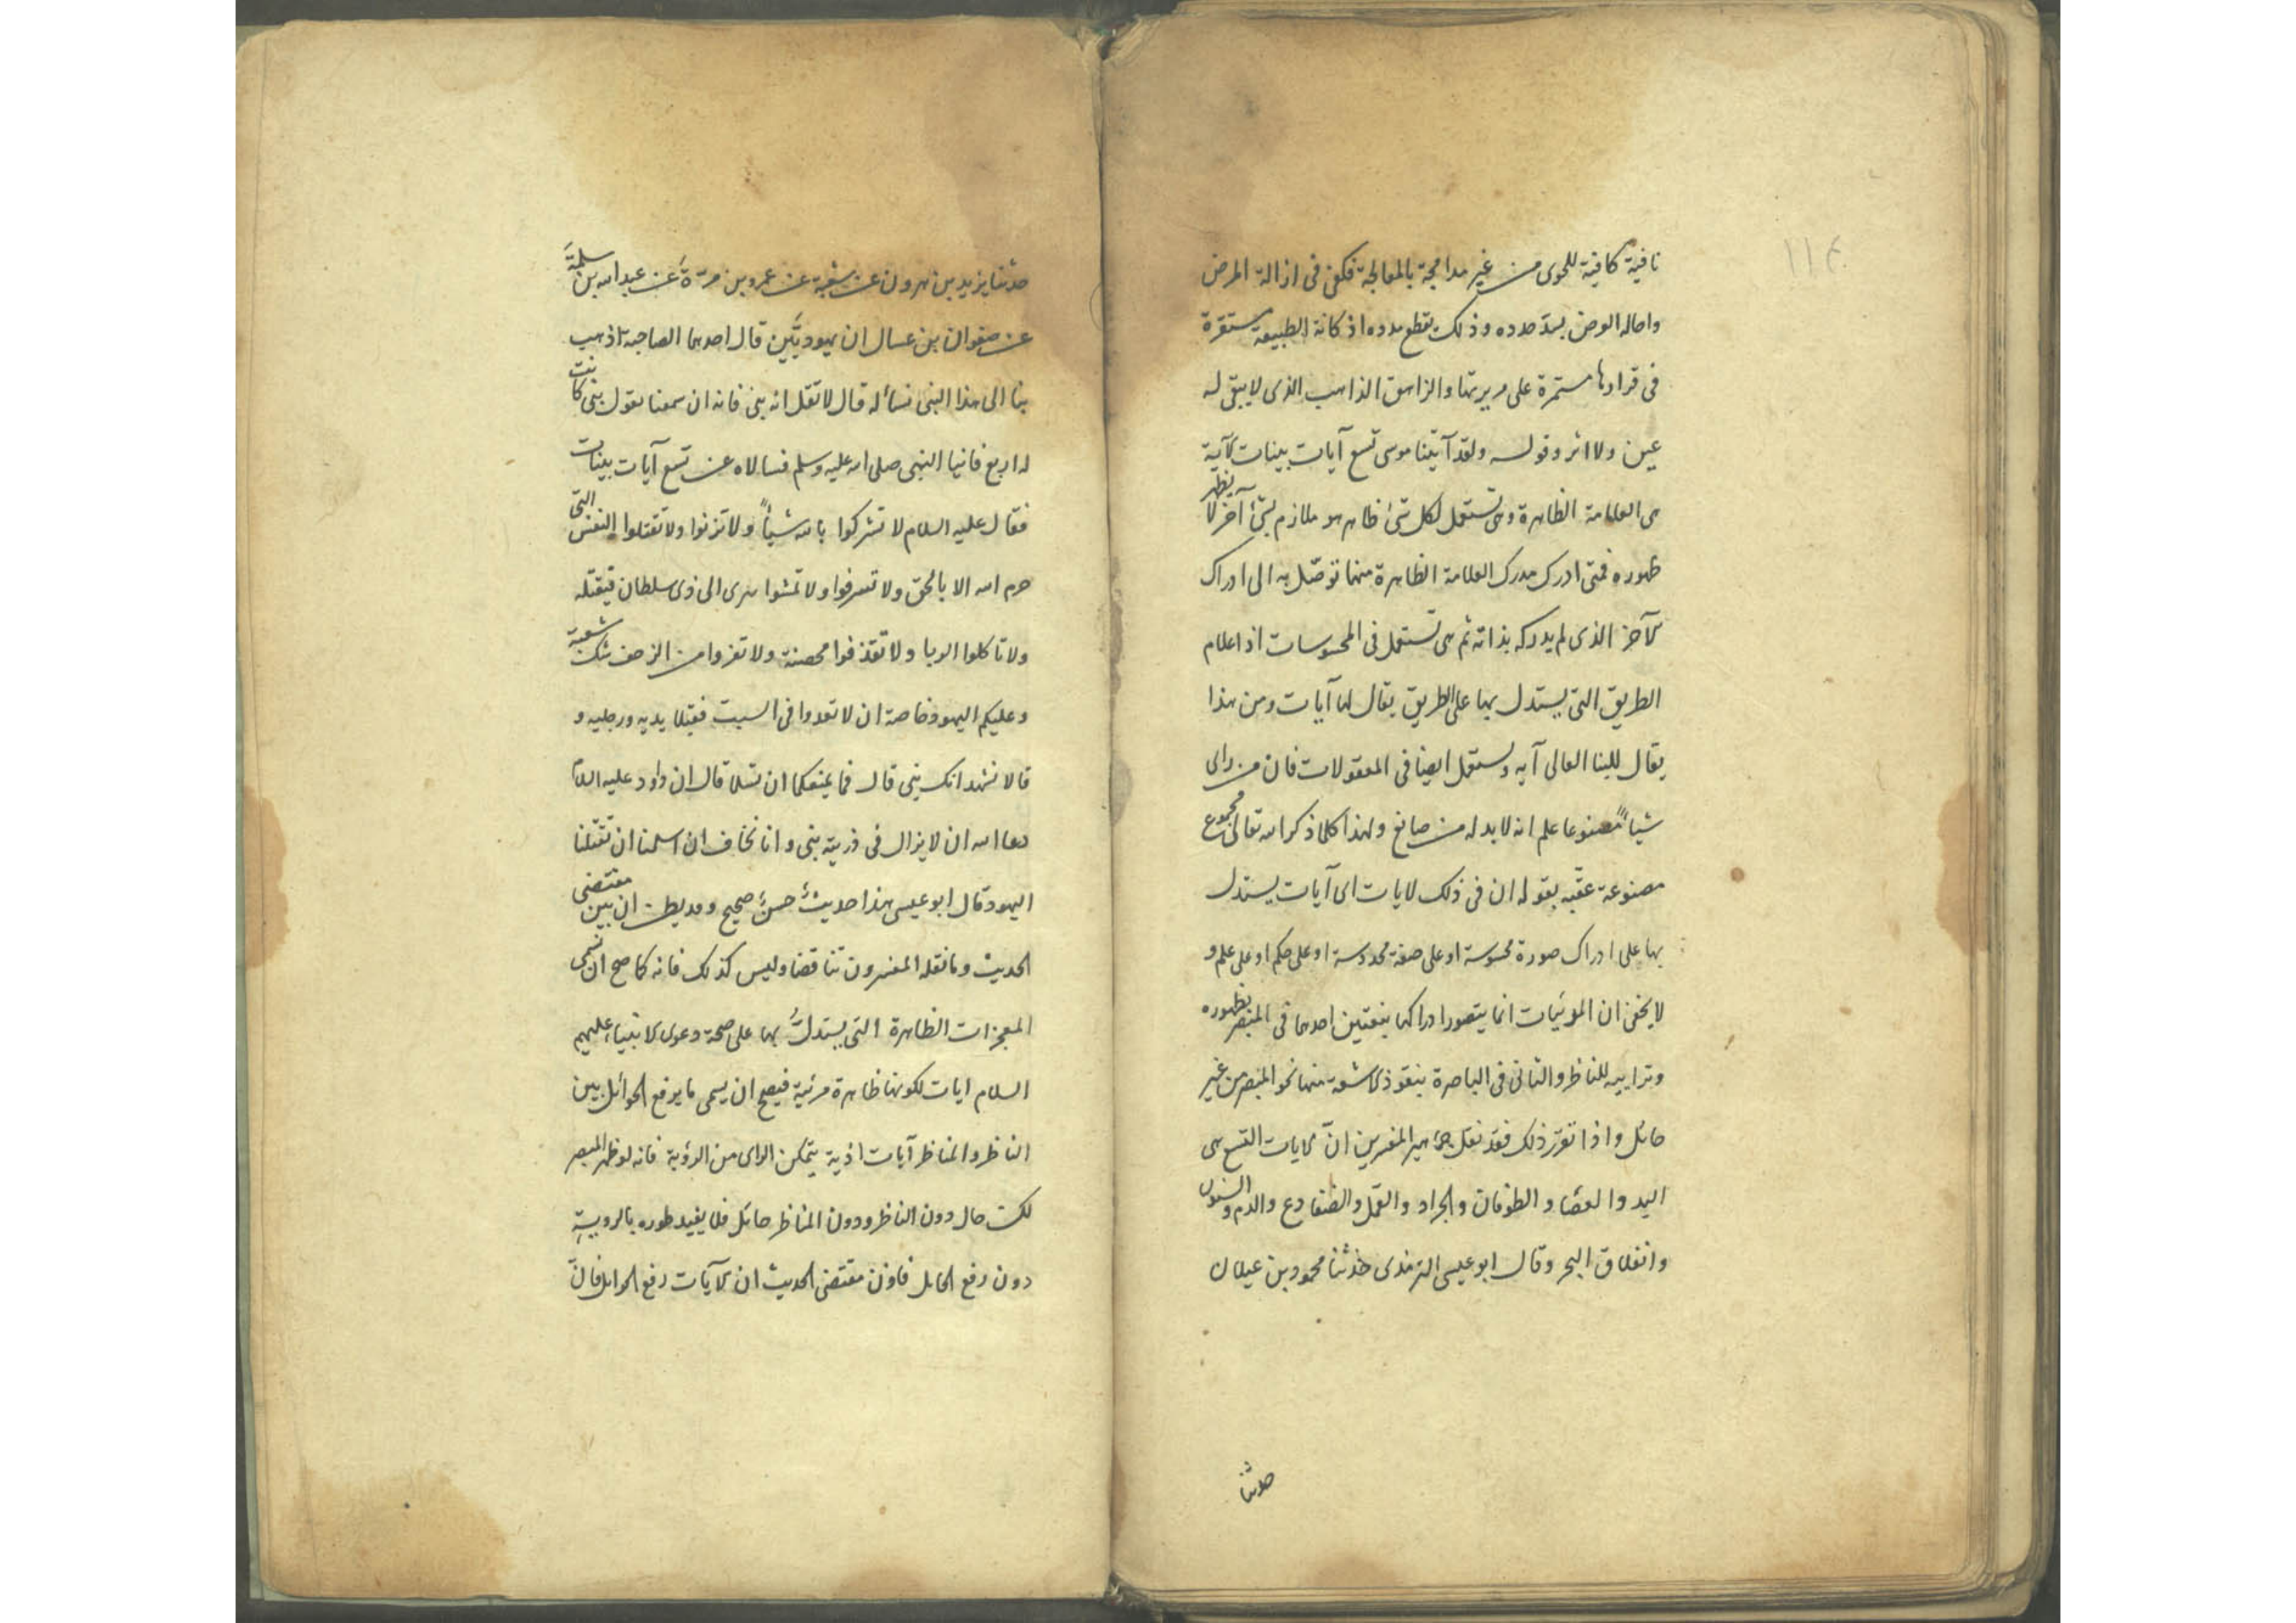 ١١٤
نافية كافية للحوى من غير مدامجة بالمعالجة فكفى فى ازالة المرض
واحاله العرض بسدّ صدده وذلك بقطع مدده اذ كانة الطبيعة مستقرة
فى قرادها مستمرة على مريرتها والزاهق الذاهب الذى لا يبقى له
عين ولا اثر وقوله ولقد آتينا موسى تسع آيات بينات الآية
هى العلامة الظاهرة وهى تستعمل لكل شئ ظاهر هو ملازم بشئ آخر لا يظهر
ظهوره فمتى ادرك مدرك العلامة الظاهرة منهما توصّل به الى ادراك
الآخر الذى لم يدركه بذاته ثم هى تستعمل فى المحسوسات اذ اعلام
الطريق التى يستدل بها على الطريق يقال لها آيات ومن هذا
يقال للبنا العالى آيه وتستعمل ايضا فى المعقولات فان من راى
شياً مصنوعا علم انه لابد له من صانع ولهذا كلما ذكر الله تعالى مجموع
مصنوعة عقّبه بقوله ان فى ذلك لايات اى آيات يستدل
بها على ادراك صورة محسوسة او على صفة محدوسة او على حكم او على علم و
لا يخفى ان المرئيات انما يتصور ادراكها بنعتين احدهما فى المبصر بظهوره
وترابيه للناظر والثانى فى الباصرة بنفوذ الاشعة منها نحو المبصر من غير
حائل واذا تقرّر ذلك فقد نقل جماهير المفسرين انّ الايات التسع هى
اليد والعصا و الطوفان والجراد والقمل والضفادع والدم والسنون
وانفلاق البحر وقال ابو عيسى الترمذى حدثنا محمود بن غيلان
حدثنا
حدثنا يزيد بن هرون عن شعبة عن عمرو بن مرّة عن عبد الله بن سلمة
عن صفوان بن عسال ان يهوديَّين قال احدهما لصاحبه اذهب
بنا الى هذا النبى نسأله قال لا تقل انه نبى فانه ان سمعنا نقول نبى كانت
له اربع فاتيا النبى صلى الله عليه وسلم فسالاه عن تسع آيات بينات
فقال عليه السلام لا تشركوا بالله شياً ولا تزنوا ولا تقتلوا النفس التى
حرم الله الا بالحق ولا تسرفوا ولا تمشوا ببرى الى ذى سلطان فيقتله
ولا تاكلوا الربا ولا تقذفوا محصنة ولا تفروا من الزحف شك شعبة
وعليكم اليهود خاصة ان لا تعدوا فى السبت فقبلا يديه ورجليه و
قالا نشهد انك نبى قال فما يمنعكما ان تسلما قالا ان داود عليه السلام
دعا الله ان لا يزال فى ذريته نبى وانا نخاف ان اسلمنا ان تقتلنا
اليهود قال ابو عيسى هذا حديث حسن صحيح وقد يظن ان بين مقتضى
الحديث وما نقله المفسرون تناقضا وليس كذلك فانه كما صح ان نسمى
المعجزات الظاهرة التى يستدلّ بها على صحة دعوى الانبياء عليهم
السلام ايات لكونها ظاهرة مرئية فيصح ان يسمى ما يرفع الحوائل بين
الناظر والمناظر آيات اذ به يتمكن الراى من الرؤية فانه لو ظهر المبصر
لكن حال دون الناظر ودون المناظر حائل فلا يفيد ظهوره بالروية
دون رفع الحايل فاذن مقتضى الحديث ان الآيات رفع الحوايل فانّ